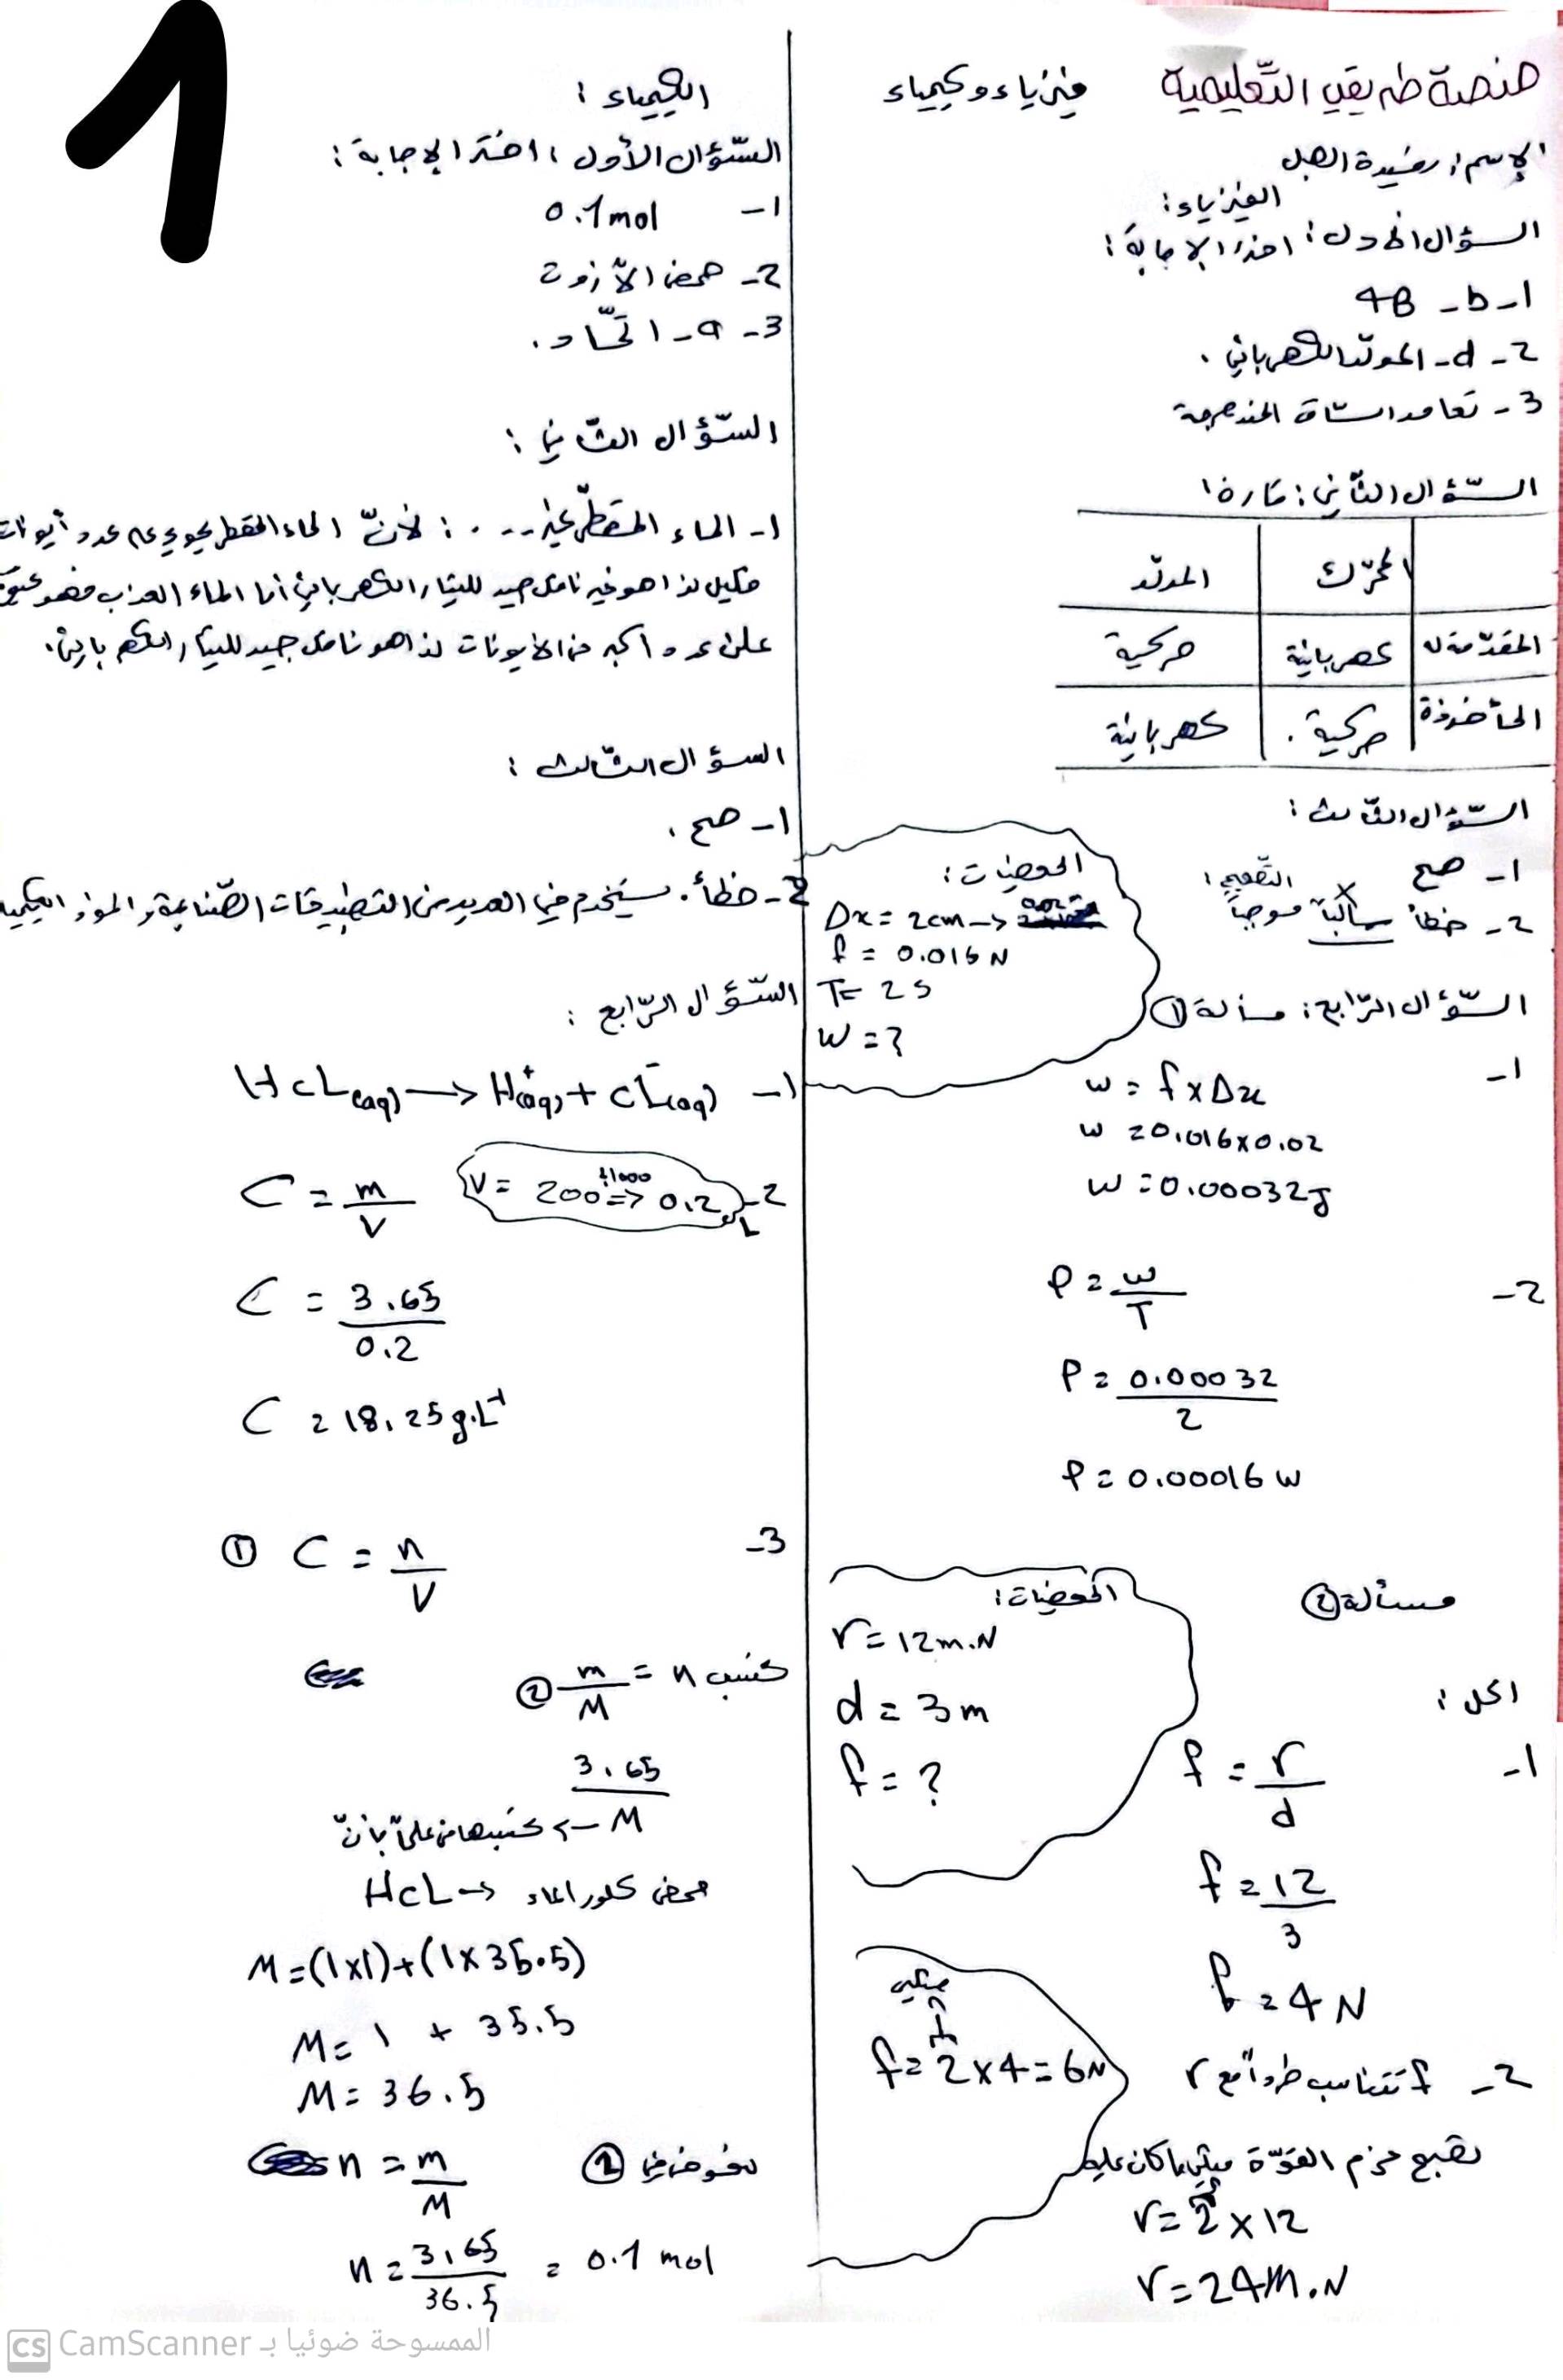 1
منصة طريقي التّعليمية فيزياء وكيمياء
الإسم: رشيدة
الفيزياء:
السؤال الأول: اختر الإجابة:
1- b- 4B
2- d- المولد الكهربائي.
3- تعامد الساق المتدحرجة
السّؤال الثّاني: قارن
المحرّك المولّد
المقدّمة كهربائية حركية
المأخوذة حركية. كهربائية
السّؤال الثالث:
1- صح
2- خطأ سالباً x التّصحيح: موجباً
السّؤال الرّابع: مسألة ①
المعطيات:
Δx = 2cm →
f = 0.016 N
T= 2s
W = ?
1- w = f x Δx
w = 0.016 x 0.02
w = 0.00032 J
2- P = w / T
P = 0.00032 / 2
P = 0.00016 w
مسألة ②
المعطيات:
r = 12 m.N
d = 3 m
f = ?
الحل:
1- f = r / d
f = 12 / 3
f = 4 N
2- f تتناسب طرداً مع r
يصبح عزم القوّة مثلي ما كان عليه
r = 2 x 12
r = 24 m.N
مثلي
f = 2 x 4 = 6N
الكيمياء:
السّؤال الأول: اختر الإجابة:
1- 0.1 mol
2- حمض الآزوت
3- a- اتّحاد.
السّؤال الثّاني:
1- الماء المقطّر غير ...: لأنّ الماء المقطر يحوي على عدد أيونات
قليل لذا هو غير ناقل جيد للتيار الكهربائي أما الماء العذب فهو
على عدد أكبر من الأيونات لذا هو ناقل جيد للتيار الكهربائي.
السؤال الثّالث:
1- صح.
2- خطأ. يستخدم في العديد من التطبيقات الصّناعية و
السّؤال الرّابع:
1- HCL(aq) → H⁺(aq) + CL⁻(aq)
2- V = 200 ÷1000 => 0.2 L
C = m / V
C = 3.65 / 0.2
C = 18.25 g.L⁻¹
3- C = n / V ①
نحسب n = m / M ②
3.65 / M
M → نحسبها من علماً بأنّ
حمض كلور الماء → HCL
M = (1x1) + (1x35.5)
M = 1 + 35.5
M = 36.5
نعوض في ② n = m / M
n = 3.65 / 36.5 = 0.1 mol
CS CamScanner الممسوحة ضوئيا بـ